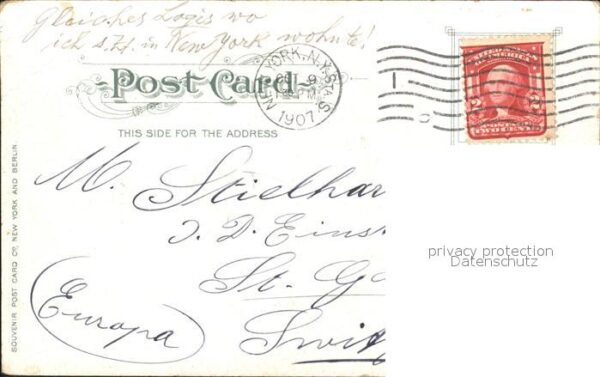 Gleiches Logis wo
ich s. Zt. in New York wohnte!
Post Card
NEW YORK, N.Y. STA. S
1907
UNITED STATES
OF AMERICA
2 2
TWO CENTS
THIS SIDE FOR THE ADDRESS
M. Stielhar
J. D. Eins
St. Ga
(Europa) Swit
SOUVENIR POST CARD CO., NEW YORK AND BERLIN.
privacy protection
Datenschutz